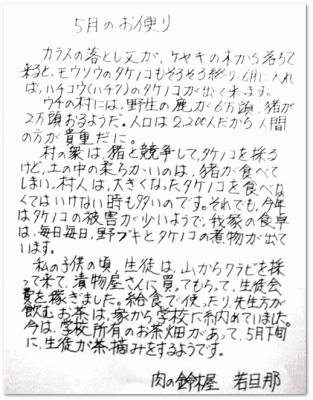 5月のお便り
カラスの落とし文が、ケヤキの木から落ちて
来ると、モウソウのタケノコもそろそろ終り、6月に入れ
ば、ハチコウ(ハチク)のタケノコが出て来ます。
ウチの村には、野生の鹿が6万頭、猪が
2万頭おるようだ。人口は2,200人だから人間
の方が貴重だに。
村の衆は、猪と競争して、タケノコを採る
けど、土の中の柔らかいのは、猪が食べて
しまい、村人は、大きくなったタケノコを食べな
くてはいけない時も多いのです。それでも、今年
はタケノコの被害が少いようで、我家の食卓
は、毎日毎日、野ブキとタケノコの煮物が出て
います。
私の子供の頃、生徒は、山からワラビを採
って来て、漬物屋さんに買ってもらって、生徒会
費を稼ぎました。給食で使ったり、先生方が
飲むお茶は、家から学校に納めていました。
今は、学校所有のお茶畑があって、5月下旬
に、生徒が茶摘みをするようです。
肉の鈴木屋 若旦那